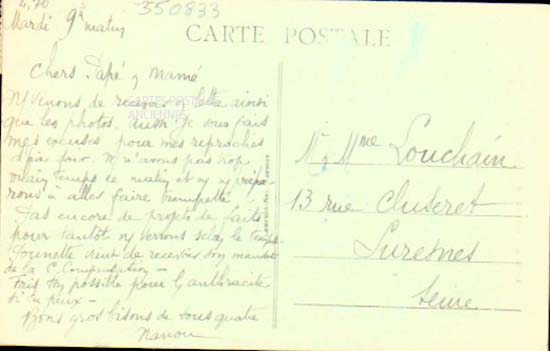 4,70
350833
Mardi 9h matin
CARTE POSTALE
Chers Papé, Mamé
Ns venons de recevoir v. lettre ainsi
que les photos. Aussi je vous fais
mes excuses pour mes reproches
CARTES POSTALES
ANCIENNES
de matin et ns ns prépa-
rons à aller faire trempette.
Pas encore de projets de faits
pour tantôt ns verrons selon le temps
vient de recevoir son mandat
de la Cie
Fais ton possible pour l'anthracite
si tu peux -
Bons gros bisons de tous quatre
Nanou
Mr, Mme Louchain
13 rue Cluseret
Suresnes
Seine